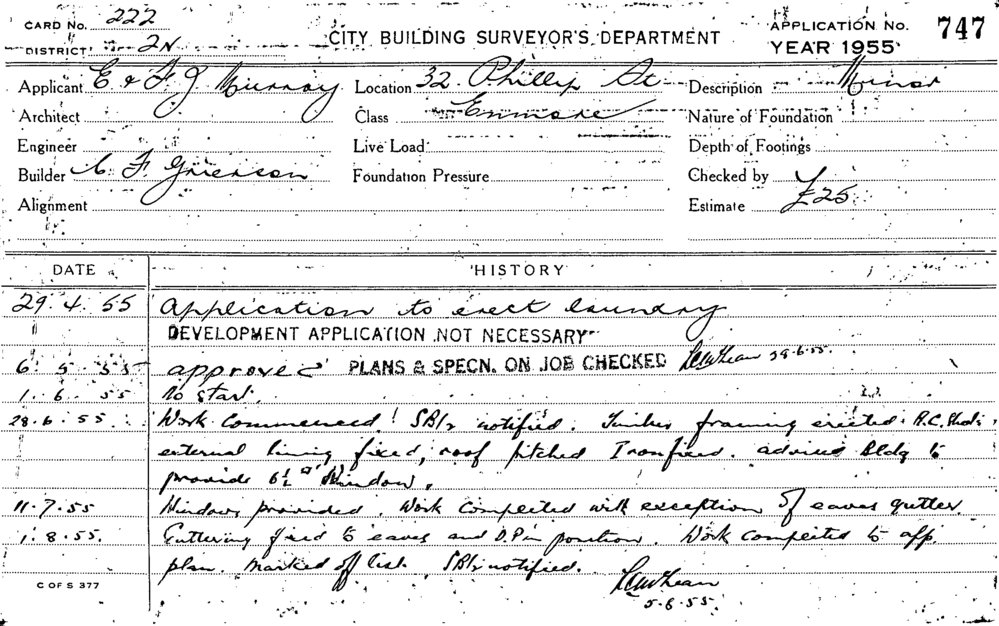 CARD No. 222
DISTRICT 2N
CITY BUILDING SURVEYOR'S DEPARTMENT
APPLICATION No. 747
YEAR 1955
Applicant E & F J Murray Location 32 Phillip St Description Minor
Architect Class Enmore Nature of Foundation
Engineer Live Load Depth of Footings
Builder C. F. Grierson Foundation Pressure Checked by
Alignment Estimate £25
DATE HISTORY
29.4.55 Application to erect laundry
DEVELOPMENT APPLICATION NOT NECESSARY
6 5 55 approved PLANS & SPECN. ON JOB CHECKED 29.6.55.
1.6.55 No start.
28.6.55. Work Commenced! notified. Timber framing erected.
external lining fixed, roof pitched Iron fixed. advised Bldg to
provide 6½ Window.
11.7.55 Windows provided. Work completed with exception of eaves gutter.
1.8.55. Guttering fixed to eaves and D.P in position. Work completed to app.
plan. marked off list. notified.
5.8.55.
C OF S 377